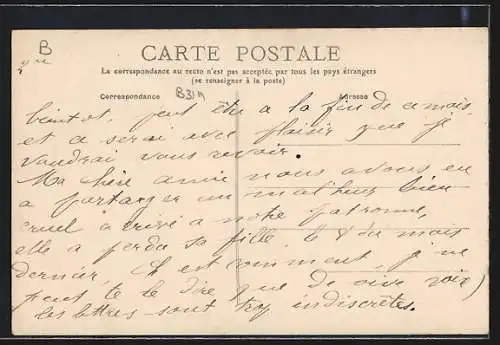 B
CARTE POSTALE
La correspondance au recto n'est pas acceptée par tous les pays étrangers
(se renseigner à la poste)
Correspondance B31A Adresse
bientot, peut être a la fin de ce mois,
et ce serai avec plaisir que je
vaudrai vous revoir.
Ma chère amie nous avons eu
a partarger un malheur bien
cruel arrivé a notre patronne,
elle a perdu sa fille le 8 du mois
dernier, est comment, je ne
peut te le dire que de vive voix
les lettres sont trop indiscrètes.